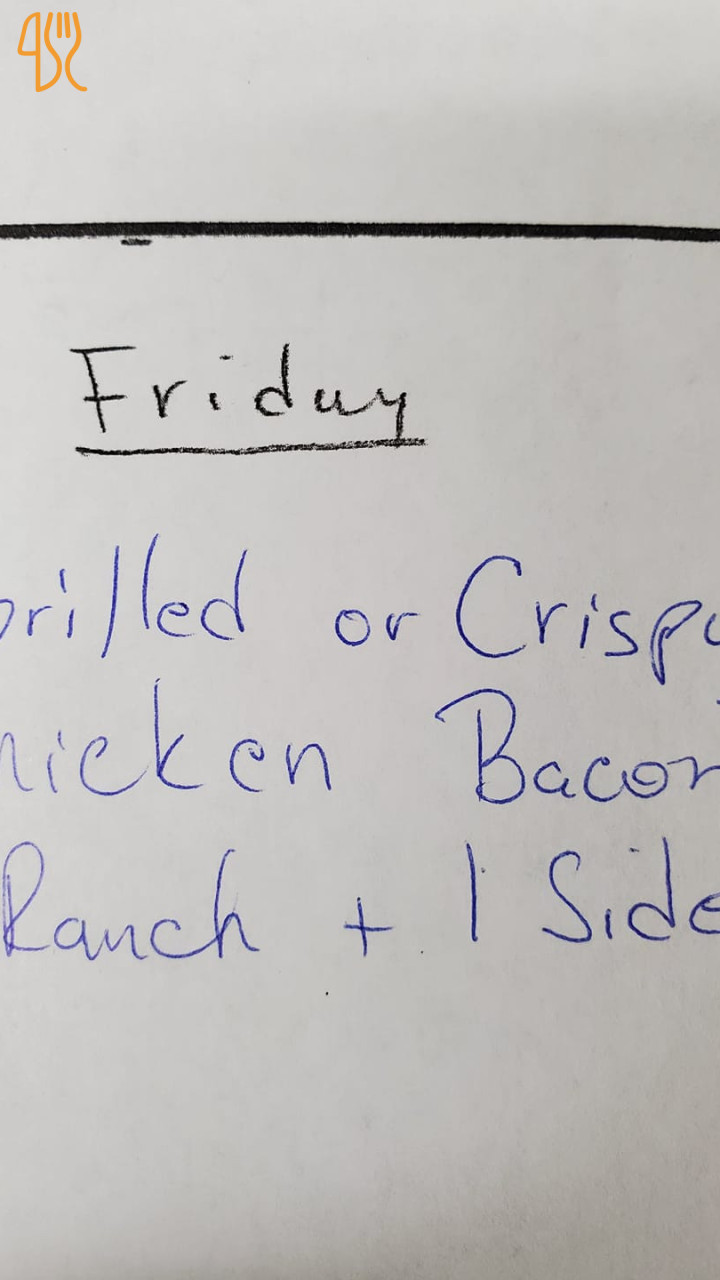 Friday
Grilled or Crispy
Chicken Bacon
Ranch + 1 Side